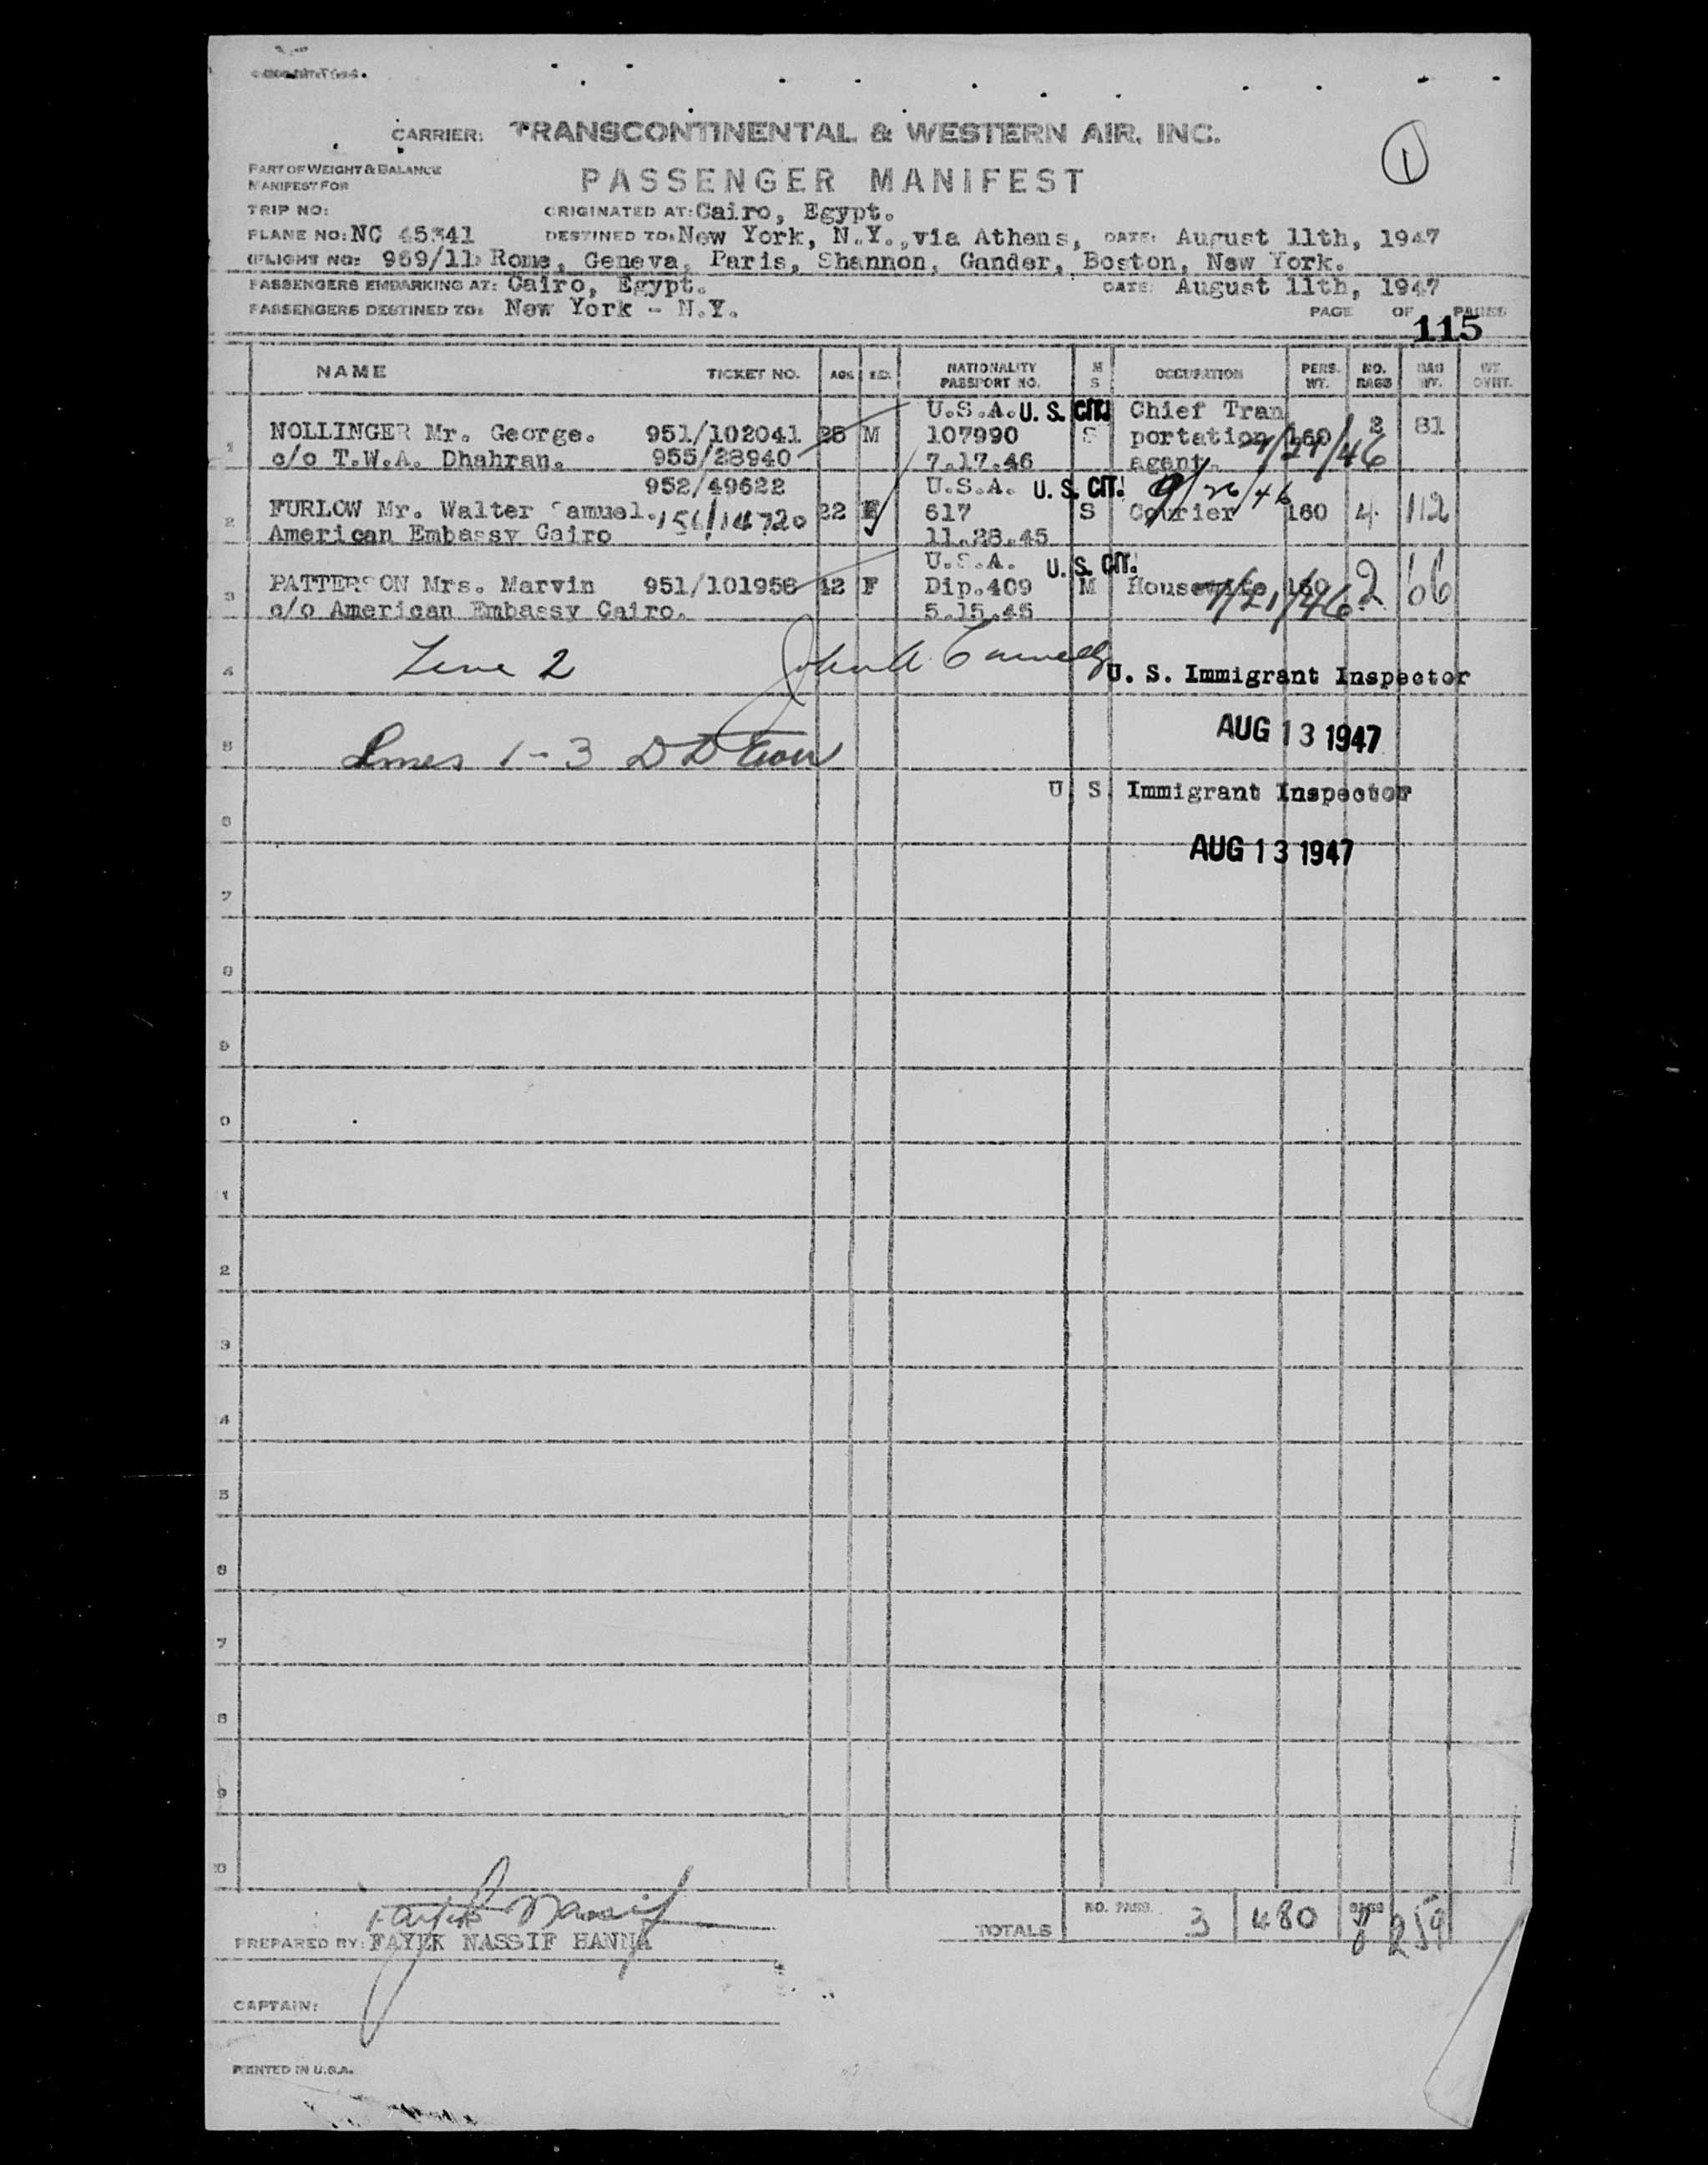 CARRIER: TRANSCONTINENTAL & WESTERN AIR, INC.
1
PART OF WEIGHT & BALANCE
MANIFEST FOR
PASSENGER MANIFEST
TRIP NO: ORIGINATED AT: Cairo, Egypt.
PLANE NO: NC 45341 DESTINED TO: New York, N.Y., via Athens, DATE: August 11th, 1947
FLIGHT NO: 969/11 Rome, Geneva, Paris, Shannon, Gander, Boston, New York.
PASSENGERS EMBARKING AT: Cairo, Egypt. DATE: August 11th, 1947
PASSENGERS DESTINED TO: New York - N.Y. PAGE OF PAGES
115
NAME TICKET NO. AGE SEX NATIONALITY PASSPORT NO. M S OCCUPATION PERS. WT. NO. BAGS BAG WT. WT. OVHT.
U.S.A. U. S. CIT. Chief Tran
1 NOLLINGER Mr. George. 951/102041 M 107990 S portation 160 81
c/o T.W.A. Dhahran. 955/28940 7.17.46 agent.
952/49622 U.S.A. U. S. CIT. 9/26/46
2 FURLOW Mr. Walter Samuel. 156/14720 22 617 S Courier 160 4 112
American Embassy Cairo 11.28.45
U.S.A. U. S. CIT.
3 PATTERSON Mrs. Marvin 951/101958 42 F Dip.409 M Housewife 160 2 66
c/o American Embassy Cairo. 5.15.45
4 Line 2 John A. U. S. Immigrant Inspector
AUG 13 1947
5 Lines 1-3
U. S. Immigrant Inspector
6
AUG 13 1947
7
8
9
0
1
2
3
4
5
6
7
8
9
0
TOTALS NO. PASS. 3 480 BAGS 8 259
Nassif
PREPARED BY: FAYEK NASSIF HANNA
CAPTAIN:
PRINTED IN U.S.A.